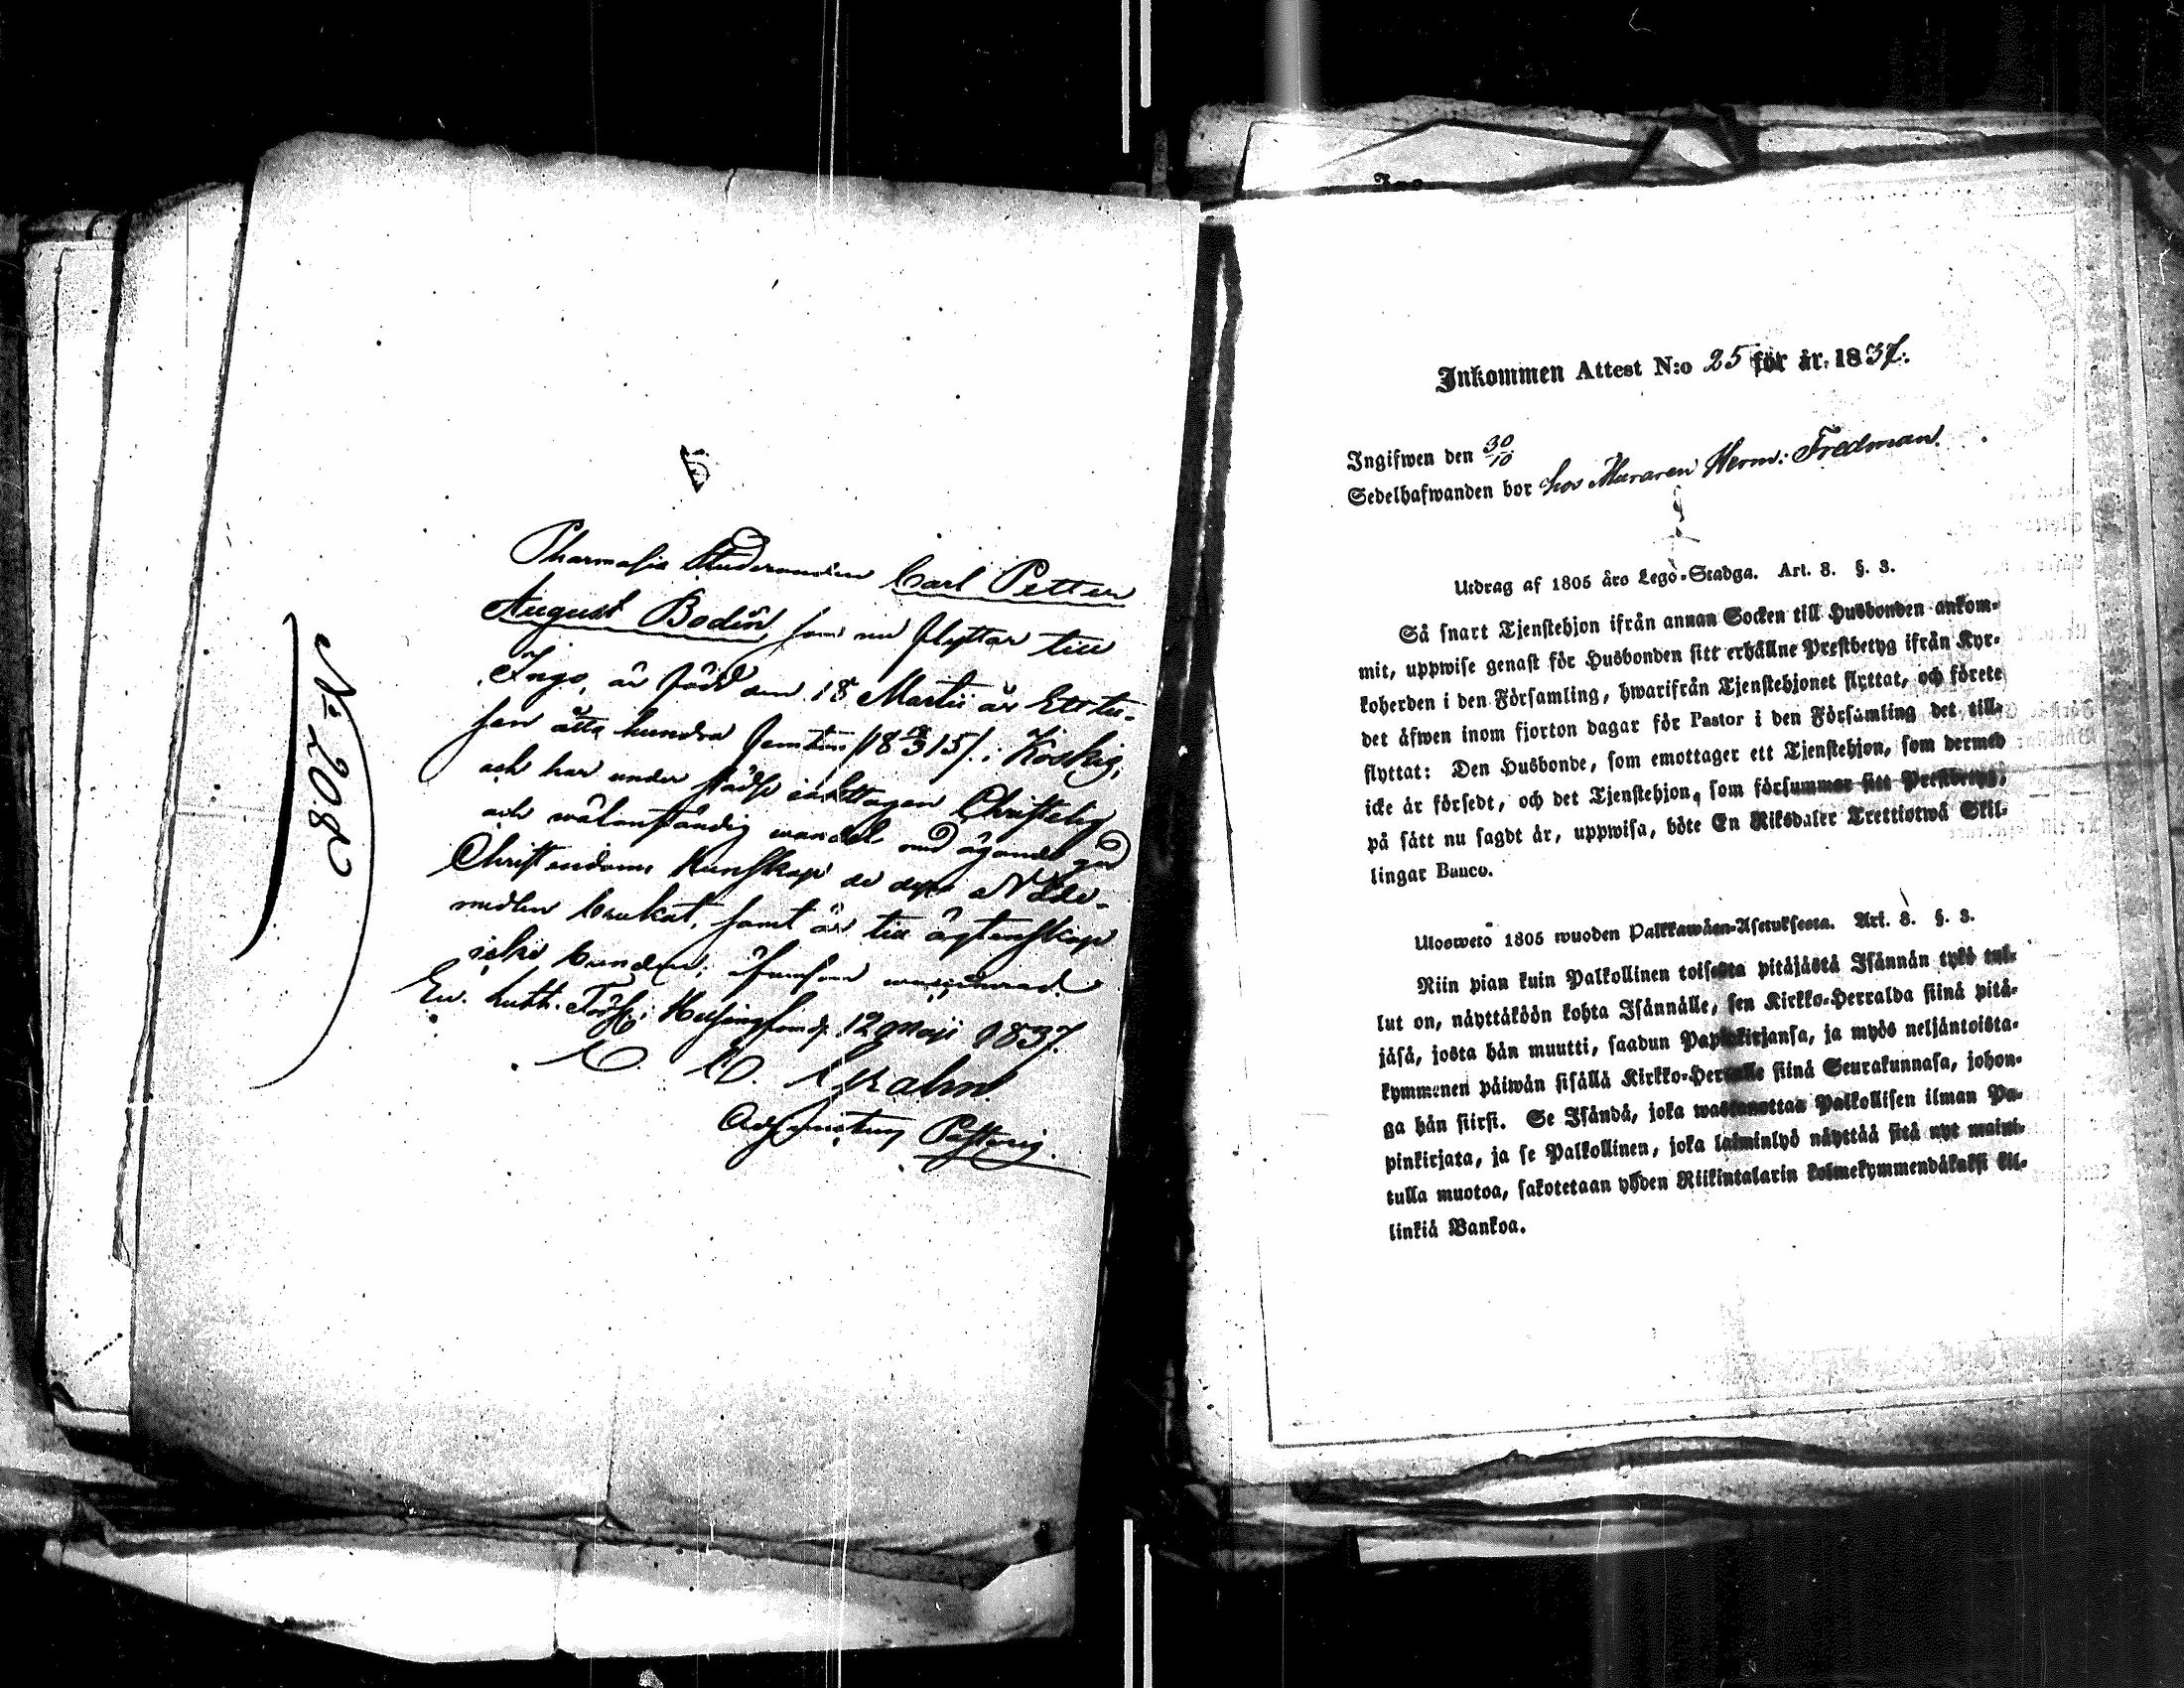 5
No 208
Pharmasie Studeranden Carl Petter
August Bodin, som nu flyttar till
Ingo, är född den 18 Martii år Ett tu-
sen åtta hundra femton /18 18/3 15/ i Koskis,
och har under städse iakttagen Christelig
och wälanständig wandel med ägande god
Christendoms Kunskap de dyra Nåde-
medlen brukat, samt är till ägtenskap
icke bunden; äfwensom waccinerad.
Ew. Luth. Förs. i Helsingfors d. 12 Maji 1837.
Grahn
Adjunctus Pastoris.
Inkommen Attest N:o 25 för år 1837.
Ingifwen den 30/10
Sedelhafwanden bor hos Muraren Herm: Fredman.
Utdrag af 1805 års Lego-Stadga. Art. 8. §. 3.
Så snart Tjenstehjon ifrån annan Socken till Husbonden ankom-
mit, uppwise genast för Husbonden sitt erhållne Prestbetyg ifrån Kyr-
koherden i den Församling, hwarifrån Tjenstehjonet flyttat, och förete
det äfwen inom fjorton dagar för Pastor i den Församling det till-
flyttat: Den Husbonde, som emottager ett Tjenstehjon, som dermed
icke är försedt, och det Tjenstehjon, som försummar sitt Prestbetyg,
på sätt nu sagdt är, uppwisa, böte En Riksdaler Trettiotwå Skil-
lingar Banco.
Uloswetö 1805 wuoden Palkkawäen-Asetuksesta. Art. 8. §. 3.
Niin pian kuin Palkollinen toisesta pitäjästä Isännän tykö tul-
lut on, näyttäköön kohta Isännälle, sen Kirkko-Herralda siinä pitä-
jäsä, josta hän muutti, saadun Papinkirjansa, ja myös neljäntoista-
kymmenen päiwän sisällä Kirkko-Herralle siinä Seurakunnasa, johon-
ga hän siirsi. Se Isändä, joka wastanottaa Palkollisen ilman Pa-
pinkirjata, ja se Palkollinen, joka laiminlyö näyttää sitä nyt maini-
tulla muotoa, sakotetaan yhden Riikintalarin kolmekymmendäkaksi kil-
linkiä Bankoa.